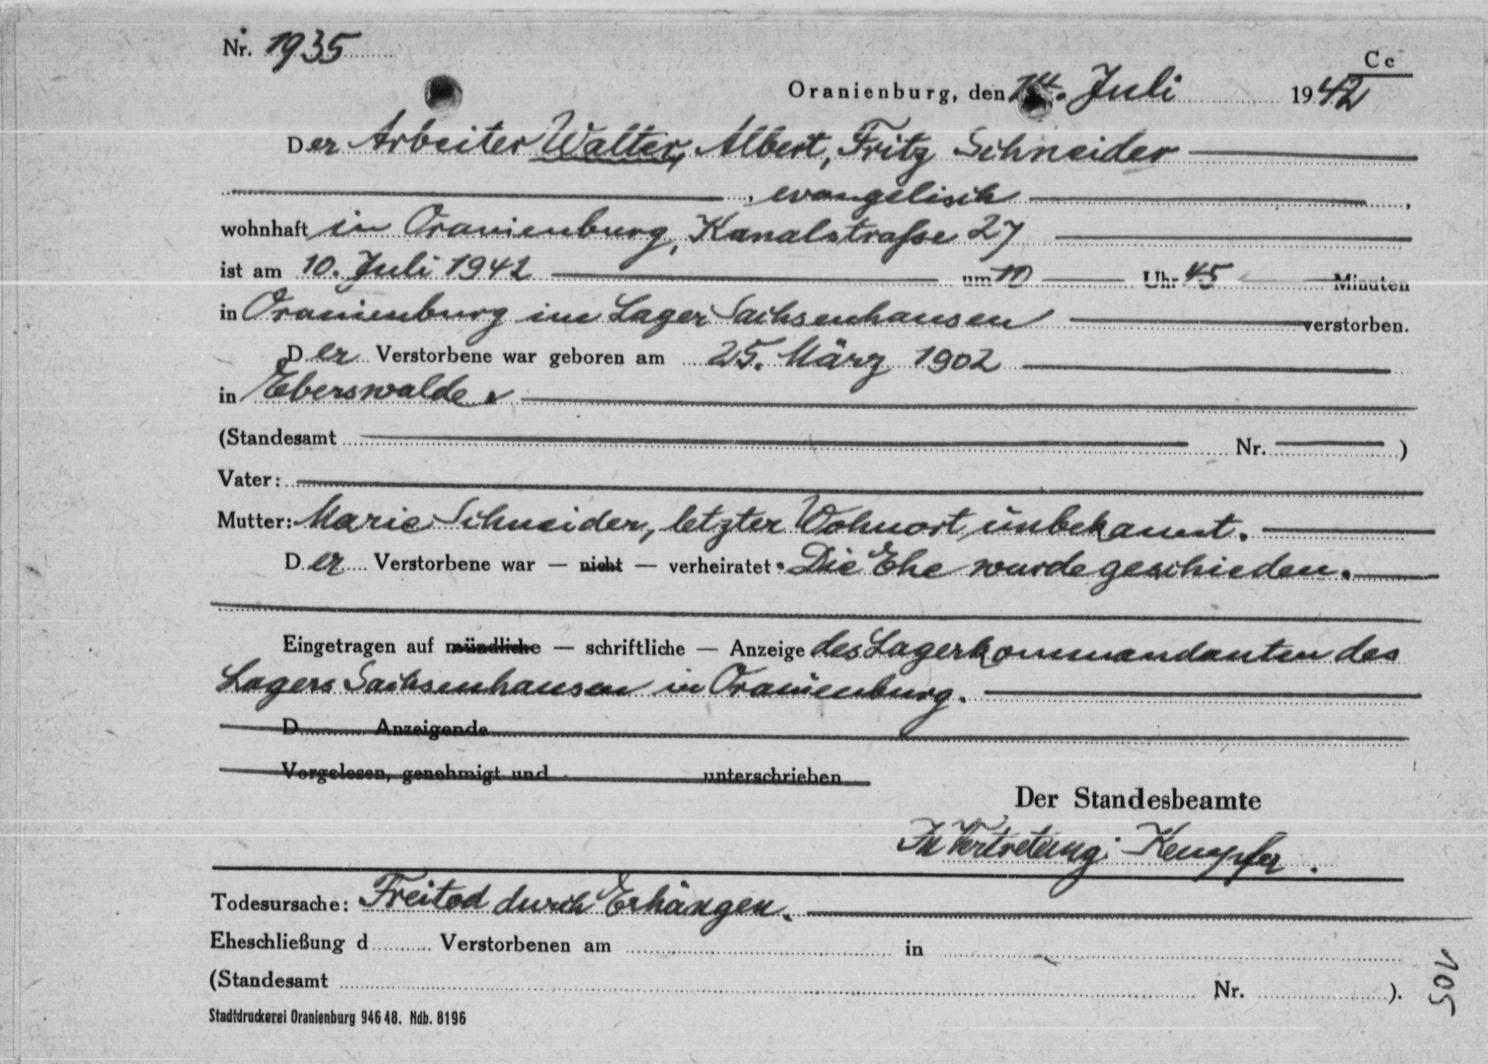 Nr. 1935
Cc
Oranienburg, den 14. Juli 1942
Der Arbeiter Walter, Albert, Fritz Schneider
, evangelisch ,
wohnhaft in Oranienburg, Kanalstraße 27
ist am 10. Juli 1942 um 10 Uhr 45 Minuten
in Oranienburg im Lager Sachsenhausen verstorben.
Der Verstorbene war geboren am 25. März 1902
in Eberswalde.
(Standesamt Nr. )
Vater:
Mutter: Marie Schneider, letzter Wohnort unbekannt.
Der Verstorbene war — nicht — verheiratet. Die Ehe wurde geschieden.
Eingetragen auf mündliche — schriftliche — Anzeige des Lagerkommandanten des
Lagers Sachsenhausen in Oranienburg.
D Anzeigende
Vorgelesen, genehmigt und unterschrieben
Der Standesbeamte
In Vertretung: Kempfer.
Todesursache: Freitod durch Erhängen.
Eheschließung d Verstorbenen am in
(Standesamt Nr. ).
Stadtdruckerei Oranienburg 946 48. Ndb. 8196
105